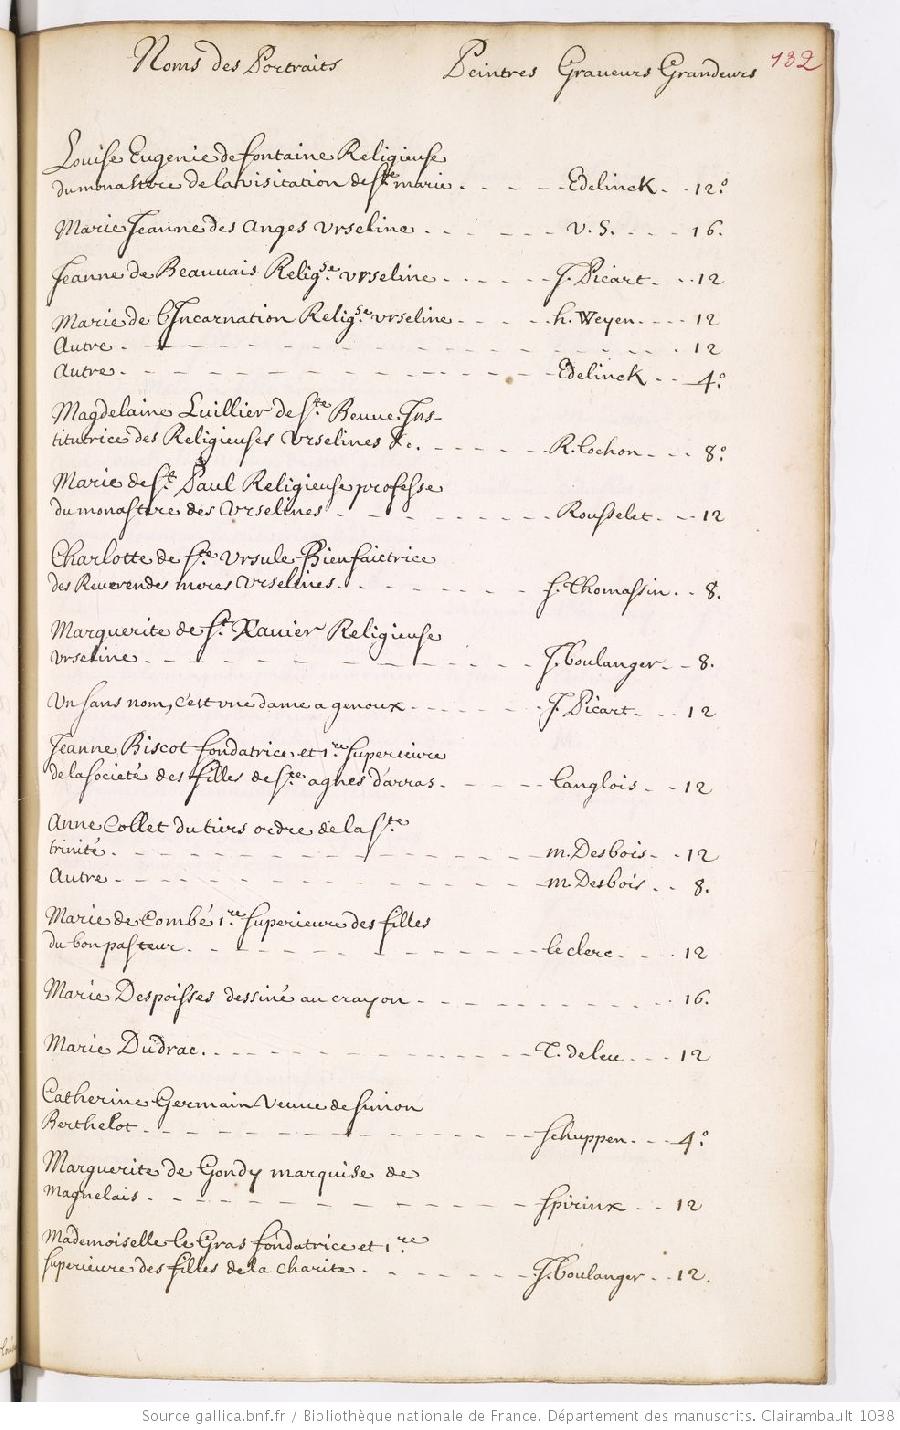 Noms des Portraits Peintres Graveurs Grandeurs 132
Louise Eugenie de fontaine Religieuse
du monastere de la visitation de Ste marie - - - - Edelinck - - 12°
Marie Jeanne des anges Urseline - - - - - v. S. - - - 16.
Jeanne de Beauvais Religse. urseline - - - - J. Picart - - 12
Marie de l'Incarnation Religse. urseline - - - - h. Weyen - - - 12
Autre - - - - - - - - - - - 12
Autre - - - - - - - - - Edelinck - - 4°
Magdelaine Luillier de Ste. Beuue Ins-
titutrice des Religieuses Urselines &c. - - - - - R. Lochon - - - 8°
Marie de St. Paul Religieuse professe
du monastere des Urselines - - - - - - Rousselet - - 12
Charlotte de Ste. Ursule Bienfaictrice
des Reuerendes meres Urselines - - - - - S. Thomassin - - 8.
Marguerite de St. Xauier Religieuse
urseline - - - - - - - - - J. boulanger - - 8.
Un sans nom, c'est une dame a genoux - - - - - J. Picart - - 12
Jeanne Biscot fondatrice et 1re superieure
de la societé des filles de Ste. agnes d'arras - - - - Langlois - - 12
Anne Collet du tiers ordre de la Ste
trinité - - - - - - - - - m. Desbois - - 12
Autre - - - - - - - - - m. Desbois - - 8.
Marie de Combé 1re. superieure des filles
du bon pasteur - - - - - - - - le clerc - - - 12
Marie Despoisses dessiné au crayon - - - - - - - - 16.
Marie Dudrac - - - - - - - - T. deleu - - - 12
Catherine Germain Veuue de Simon
Berthelot - - - - - - - - - Schuppen - - 4°
Marguerite de Gondy marquise de
Magnelais - - - - - - - - - Spirinx - - 12
Mademoiselle le Gras fondatrice et 1re
superieure des filles de la charité - - - - - J. boulanger - - 12.
Source gallica.bnf.fr / Bibliothèque nationale de France. Département des manuscrits. Clairambault 1038